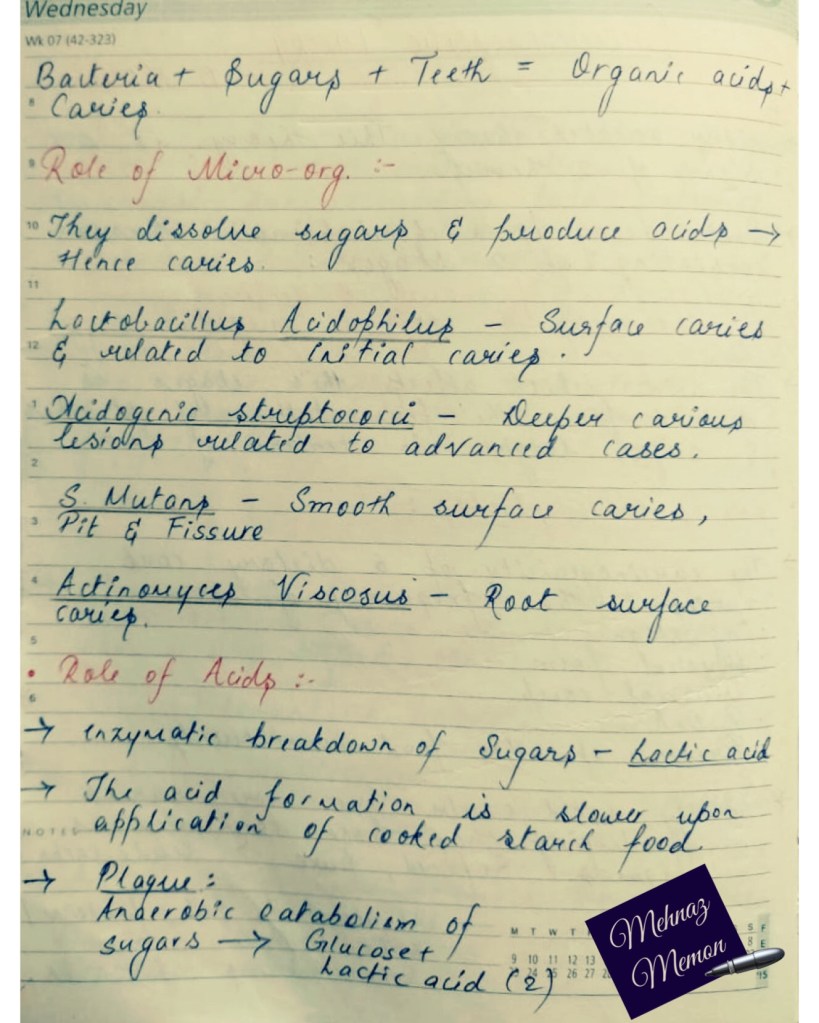 Wednesday
Wk 07 (42-323)
Bacteria + Sugars + Teeth = Organic acids +
8 Caries.
9 Role of Micro-org. :-
10 They dissolve sugars & produce acids →
Hence caries.
11
Lactobacillus Acidophilus - Surface caries
12 & related to initial caries.
1 Acidogenic streptococci - Deeper carious
lesions related to advanced cases.
2
S. Mutans - Smooth surface caries,
3 Pit & Fissure
4 Actinomyces Viscosus - Root surface
caries.
5
• Role of Acids :-
6
→ enzymatic breakdown of Sugars - Lactic acid
→ The acid formation is slower upon
NOTES application of cooked starch food
→ Plaque :
Anaerobic catabolism of
sugars → Glucose +
Lactic acid (2)
M T W T S F
9 10 11 12 13 8 E
24 25 26 27
Mehnaz
Memon